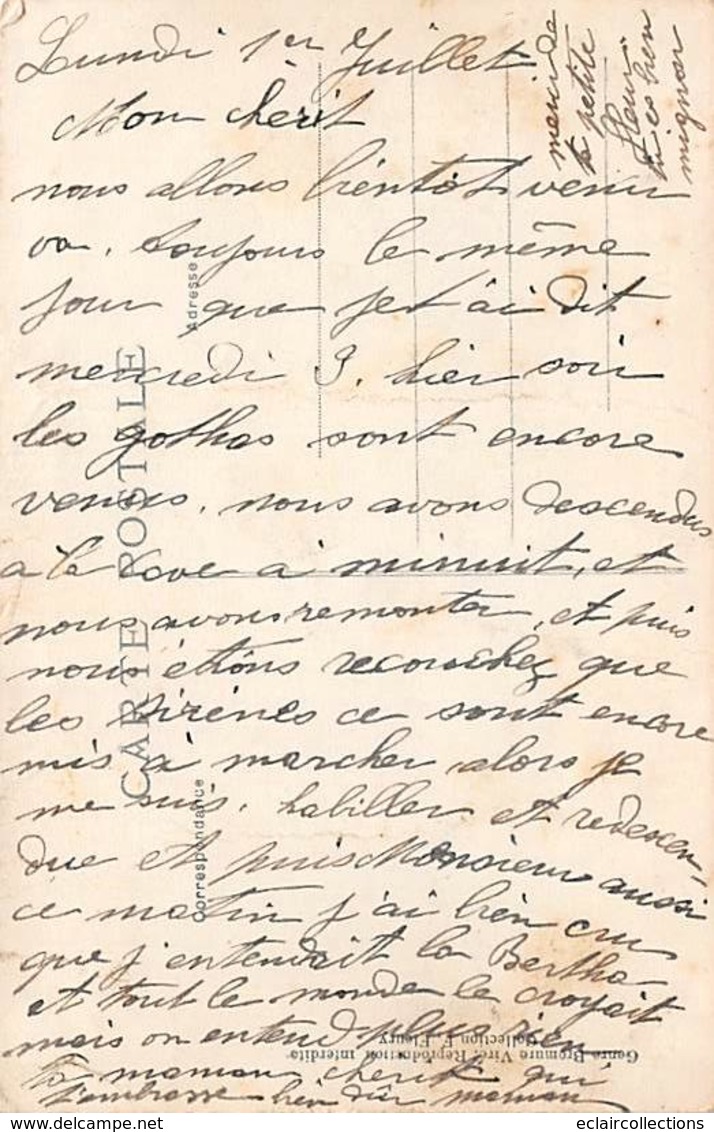 Lundi 1er Juillet
Mon cherit
nous allons bientôt venir
va. toujours le même
jour que je t'ai dit
mercredi 3. hier soir
les gothas sont encore
venus. nous avons descendus
a la cave a minuit, et
nous avons remonter, et puis
nous étions recouchez que
les sirénes ce sont encore
mis a marcher alors je
me suis. habiller et redescen-
due et puis Monsieur aussi
ce matin j'ai bien cru
que j'entendait la Bertha
et tout le monde le croyait
mais on entend plus rien
ta maman cherit qui
t'embrasse bien dur maman
merci de
ta petite
fleur
tu es bien
mignon
CARTE POSTALE
Correspondance
Adresse
Genre Bromure Viret Reproduction interdite
Collection F. Fleury
eclaircollections